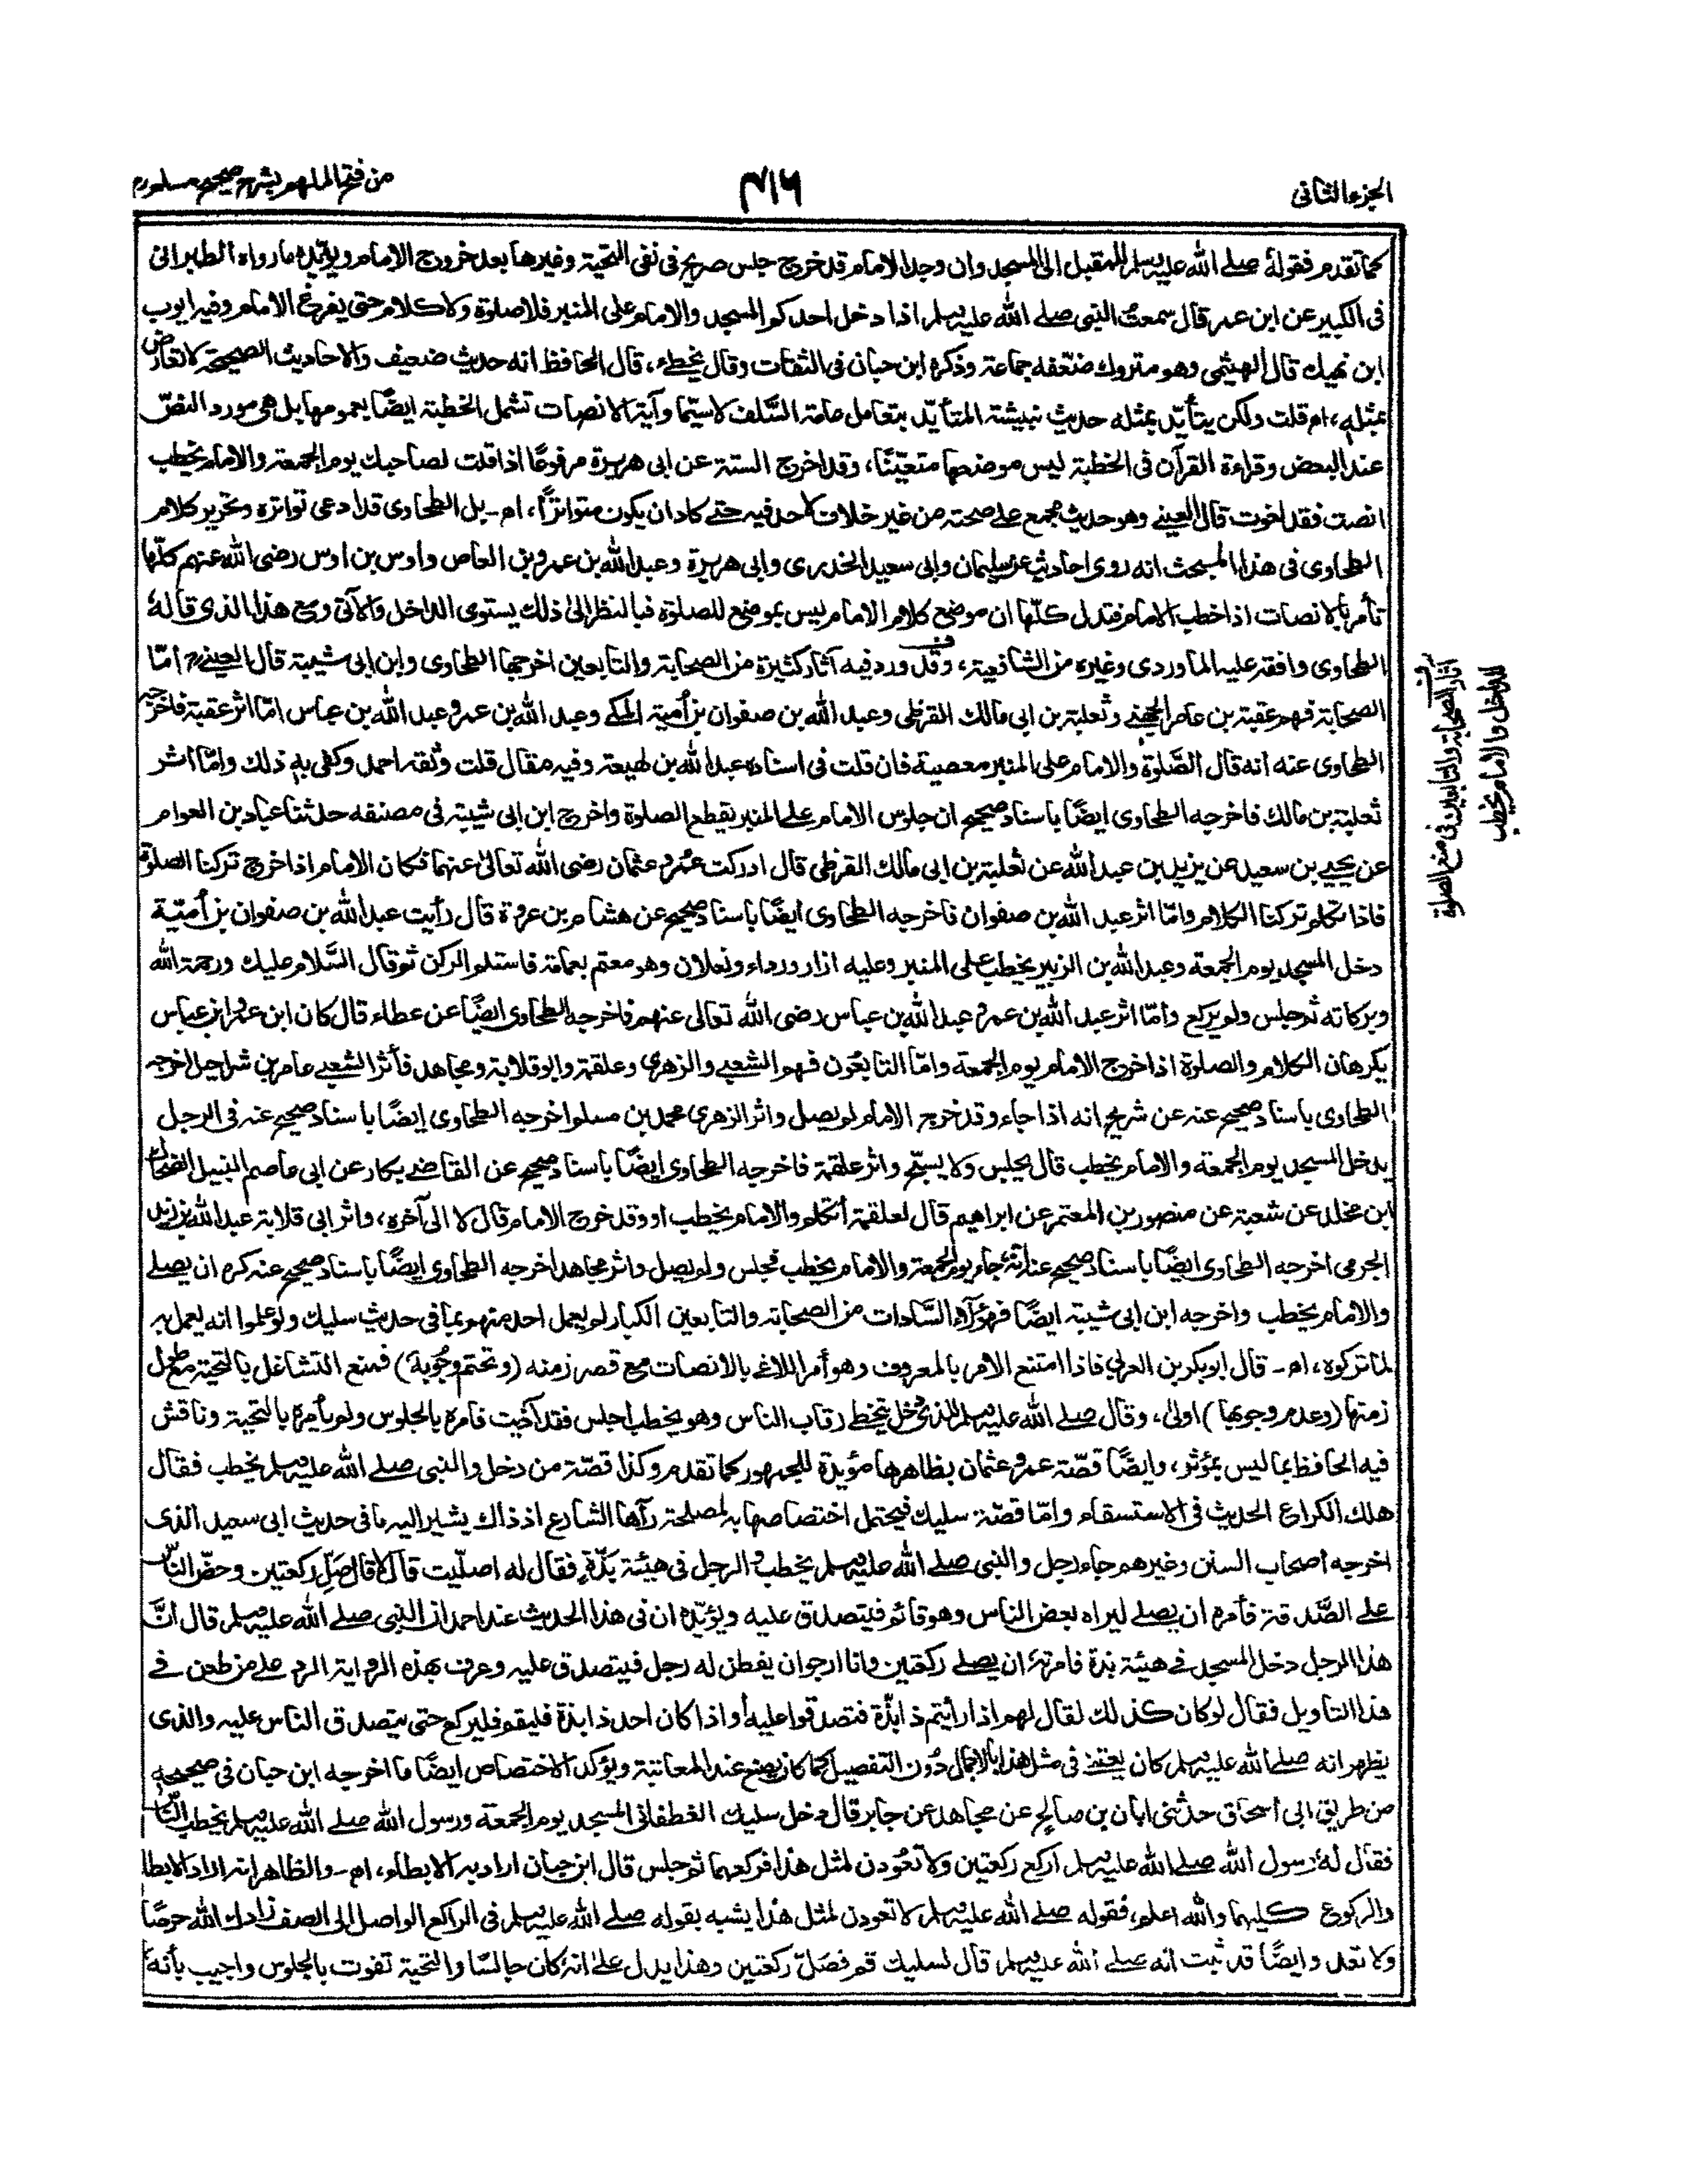 الجزء الثانى
٤١٦
من فتح الملهم بشرح صحيح مسلم رح
كما تقدم فقوله صلى الله عليه وسلم للمقبل الى المسجد وان وجد الامام قد خرج جلس صريح فى نفى التحية وغيرها بعد خروج الامام ويؤيده ما رواه الطبرانى
فى الكبير عن ابن عمر قال سمعت النبى صلے الله عليه وسلم اذا دخل احدكم المسجد والامام على المنبر فلا صلوة ولا كلام حتى يفرغ الامام وفيه ايوب
ابن نهيك قال الهيثمى وهو متروك ضعّفه جماعة وذكره ابن حبان فى الثقات وقال يخطئ، قال الحافظ انه حديث ضعيف والاحاديث الصحيحة لا تعارض
بمثله، اه قلت ولكن يتأيّد بمثله حديث نبيشة المتأيّد بتعامل عامة السَّلف لا سيّما وآية الانصات تشمل الخطبة ايضًا بعمومها بل هى مورد النصّ
عند البعض وقراءة القرآن فى الخطبة ليس موضعها متعيّنًا، وقد اخرج الستة عن ابى هريرة مرفوعًا اذا قلت لصاحبك يوم الجمعة والامام يخطب
انصت فقد لغوت قال العينے وهو حديث مجمع على صحته من غير خلاف لاحد فيه حتے كاد ان يكون متواترًا، اه۔ بل الطحاوى قد ادعى تواتره وتحرير كلام
الطحاوى فى هذا المبحث انه روى احاديث عن سليمان وابى سعيد الخدرى وابى هريرة وعبد الله بن عمرو بن العاص واوس بن اوس رضى الله عنهم كلّها
تأمر بالانصات اذا خطب الامام فتدل كلّها ان موضع كلام الامام ليس بموضع للصلوة فبالنظر الى ذلك يستوى الداخل والآتى ومع هذا الذى قاله
الطحاوى وافقه عليه الماوردى وغيره من الشافعية، وقد ورد فيه آثار كثيرة من الصحابة والتابعين اخرجها الطحاوى وابن ابى شيبة قال العينے رح امّا
الصحابة فهم عقبة بن عامر الجهنے وثعلبة بن ابى مالك القرظى وعبد الله بن صفوان بن أمية المكے وعبد الله بن عمر وعبد الله بن عباس امّا اثر عقبة فاخرجه
الطحاوى عنه انه قال الصَّلوة والامام على المنبر معصية فان قلت فى اسناده عبد الله بن لهيعة وفيه مقال قلت وثقه احمد وكفى به ذلك وامّا اثر
ثعلبة بن مالك فاخرجه الطحاوى ايضًا باسناد صحيح ان جلوس الامام على المنبر يقطع الصلوة واخرج ابن ابى شيبة فى مصنفه حدثنا عباد بن العوام
عن يحيى بن سعيد عن يزيد بن عبد الله عن ثعلبة بن ابى مالك القرظى قال ادركت عمر وعثمان رضى الله تعالى عنهما فكان الامام اذا خرج تركنا الصلوة
فاذا تكلم تركنا الكلام وامّا اثر عبد الله بن صفوان فاخرجه الطحاوى ايضًا باسناد صحيح عن هشام بن عروة قال رأيت عبد الله بن صفوان بن أميّة
دخل المسجد يوم الجمعة وعبد الله بن الزبير يخطب على المنبر وعليه ازار ورداء ونعلان وهو معتم بعمامة فاستلم الركن ثم قال السَّلام عليك ورحمة الله
وبركاته ثم جلس ولم يركع وأمّا اثر عبد الله بن عمر وعبد الله بن عباس رضى الله تعالى عنهم فاخرجه الطحاوى ايضًا عن عطاء قال كان ابن عمر وابن عباس
يكرهان الكلام والصلوة اذا خرج الامام يوم الجمعة وامّا التابعون فهم الشعبى والزهرى وعلقمة وابو قلابة ومجاهد فأثر الشعبے عامر بن شراحيل اخرجه
الطحاوى باسناد صحيح عنه عن شريح انه اذا جاء وقد خرج الامام لم يصل واثر الزهرى محمد بن مسلم اخرجه الطحاوى ايضًا باسناد صحيح عنه فى الرجل
يدخل المسجد يوم الجمعة والامام يخطب قال يجلس ولا يسبّح واثر علقمة فاخرجه الطحاوى ايضًا باسناد صحيح عن القاضے بكار عن ابى عاصم النبيل الضحاك
ابن مخلد عن شعبة عن منصور بن المعتمر عن ابراهيم قال لعلقمة أتتكلم والامام يخطب او وقد خرج الامام قال لا الى آخره، واثر ابى قلابة عبد الله بن زيد
الجرمى اخرجه الطحاوى ايضًا باسناد صحيح عنه انه جاء يوم الجمعة والامام يخطب فجلس ولم يصل واثر مجاهد اخرجه الطحاوى ايضًا باسناد صحيح عنه كره ان يصلے
والامام يخطب واخرجه ابن ابى شيبة ايضًا فهؤلاء السَّادات من الصحابة والتابعين الكبار لم يعمل احد منهم بما فى حديث سليك ولو علموا انه يعمل به
لما تركوه، اه۔ قال ابو بكر بن العربى فاذا امتنع الامر بالمعروف وهو أمر اللاغى بالانصات مع قصر زمنه (وتحتم وجوبه) فمنع التشاغل بالتحية مع طول
زمنها (وعدم وجوبها) اولى، وقال صلے الله عليه وسلم للذى دخل يتخطى رقاب الناس وهو يخطب اجلس فقد آذيت فامره بالجلوس ولم يأمره بالتحية وناقش
فيه الحافظ بما ليس بمؤثر، وايضًا قصّة عمر وعثمان بظاهرها مؤيدة للجمهور كما تقدم وكذا قصّة من دخل والنبى صلے الله عليه وسلم يخطب فقال
هلك الكراع الحديث فى الاستسقاء وامّا قصّة سليك فيحتمل اختصاصها به لمصلحة رآها الشارع اذ ذاك يشير اليه ما فى حديث ابى سعيد الذى
اخرجه اصحاب السنن وغيرهم جاء رجل والنبى صلے الله عليه وسلم يخطب والرجل فى هيئة بذّة فقال له اصلّيت قال لا قال صلّ ركعتين وحضّ الناس
على الصَّدقة فأمره ان يصلے ليراه بعض الناس وهو قائم فيتصدق عليه ويؤيّده ان فى هذا الحديث عند احمد ان النبى صلے الله عليه وسلم قال انَّ
هذا الرجل دخل المسجد فى هيئة بذة فامرته ان يصلے ركعتين وانا ارجو ان يفطن له رجل فيتصدق عليه وعرف بهذه الرواية الرد على من طعن فے
هذا التاويل فقال لو كان كذلك لقال لهم اذا رأيتم ذا بذّة فتصدقوا عليه أو اذا كان احد ذا بذة فليقم فليركع حتى يتصدق الناس عليه والذى
يظهر انه صلے الله عليه وسلم كان يعتنے فى مثل هذا بالاجمال دون التفصيل كما كان يصنع عند المعاتبة ويؤكد الاختصاص ايضًا ما اخرجه ابن حبان فى صحيحه
من طريق ابى اسحاق حدثنى ابان بن صالح عن مجاهد عن جابر قال دخل سليك الغطفانى المسجد يوم الجمعة ورسول الله صلے الله عليه وسلم يخطب الناس
فقال له رسول الله صلے الله عليه وسلم اركع ركعتين ولا تعودن لمثل هذا فركعهما ثم جلس قال ابن حبان اراد به الابطاء، اه۔ والظاهر انه اراد الابطا
والركوع كليهما والله اعلم، فقوله صلے الله عليه وسلم لا تعودن لمثل هذا يشبه بقوله صلے الله عليه وسلم فى الراكع الواصل الى الصف زادك الله حرصًا
ولا تعد وايضًا قد ثبت انه صلے الله عليه وسلم قال لسليك قم فصلّ ركعتين وهذا يدل على انه كان جالسًا والتحية تفوت بالجلوس واجيب بأنه
آثار الصحابة والتابعين فى منع الصلوة
للداخل والامام يخطب